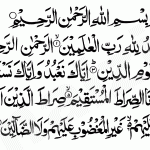 بِسْمِ اللّٰهِ الرَّحْمٰنِ الرَّحِيْمِ
مْدُ لِلّٰهِ رَبِّ الْعٰلَمِيْنَ ۙ الرَّحْمٰنِ الرَّ
وْمِ الدِّيْنِ ۙ اِيَّاكَ نَعْبُدُ وَاِيَّاكَ نَسْتَ
نَا الصِّرَاطَ الْمُسْتَقِيْمَ ۙ صِرَاطَ الَّذِيْنَ اَ
لَيْهِمْ ۙ غَيْرِ الْمَغْضُوْبِ عَلَيْهِمْ وَلَا الضَّآلِّيْنَ